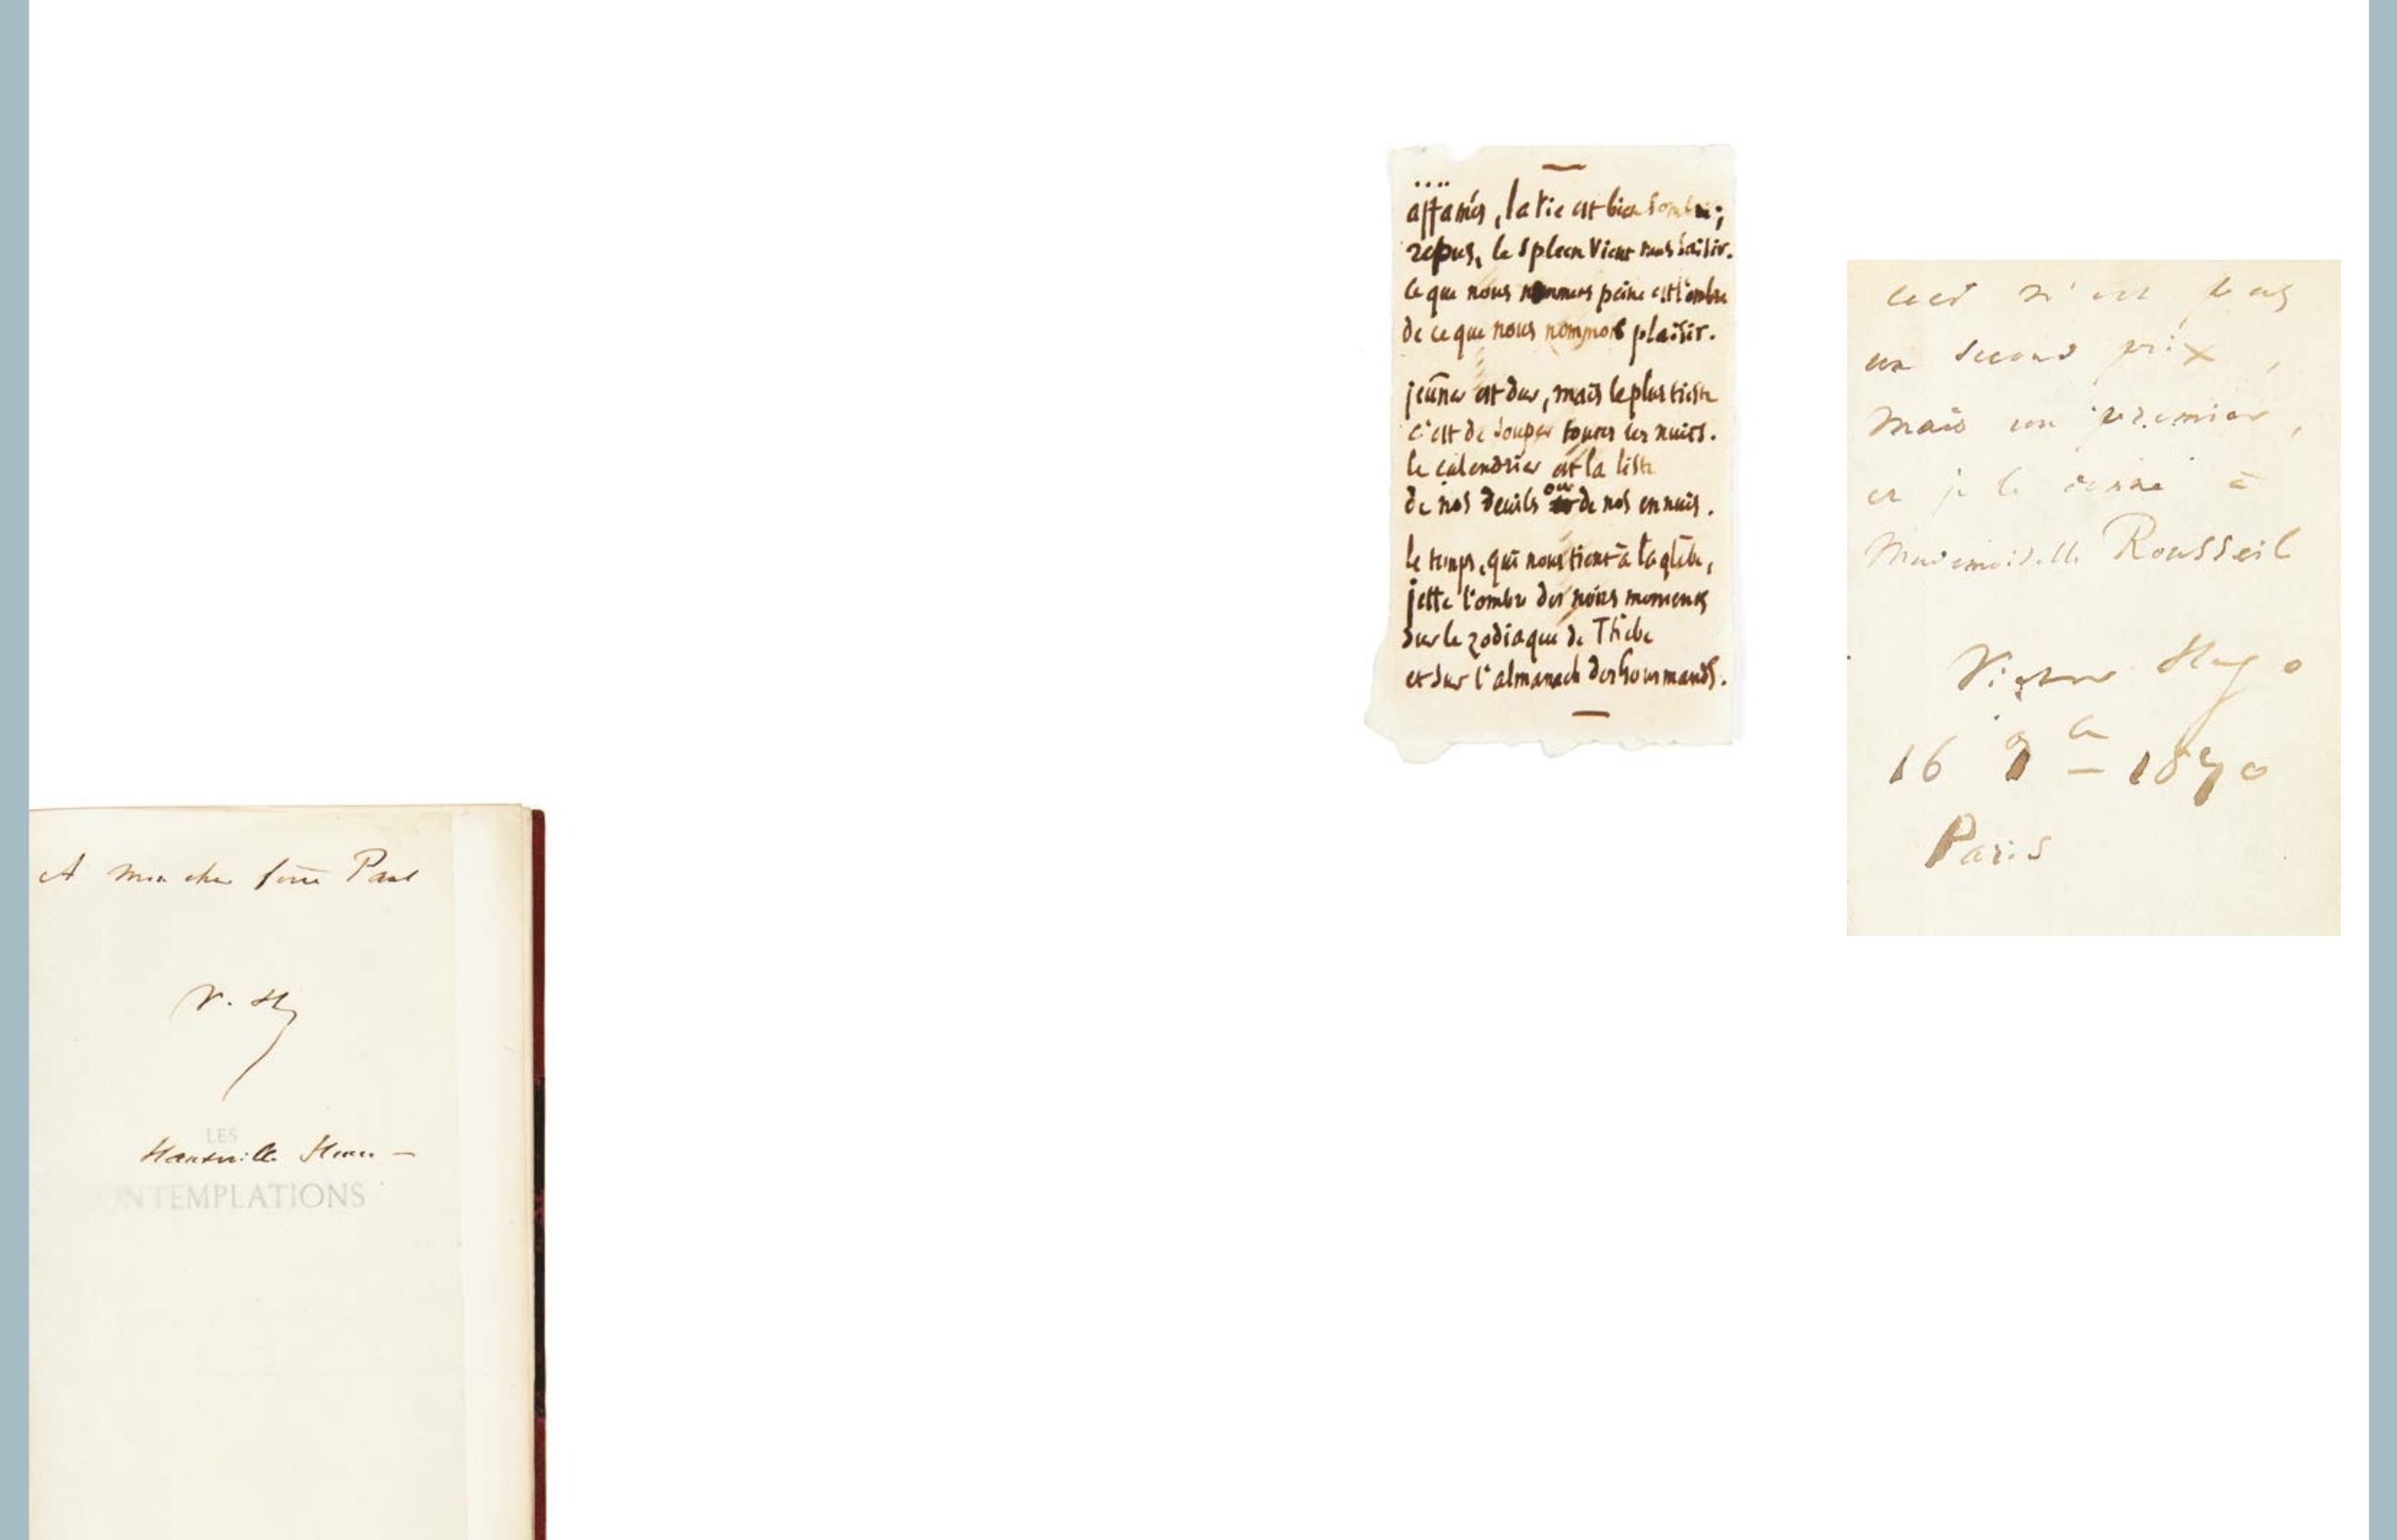 A mon cher frère Paul
V. H
LES
Hauteville House –
CONTEMPLATIONS
....
affamés, la vie est bien sombre ;
repus, le spleen vient nous saisir.
ce que nous nommons peine est l'ombre
de ce que nous nommons plaisir.
jeûner est dur, mais le plus triste
c'est de souper toutes les nuits.
le calendrier est la liste
de nos deuils ou de nos ennuis.
le temps, qui nous tient à la glèbe,
jette l'ombre des noirs moments
sur le zodiaque de Thèbe
et sur l'almanach des Gourmands.
ceci n'est pas
un second prix,
mais un premier,
et je le donne à
Mademoiselle Rousseil
Victor Hugo
16 9bre – 1870
Paris